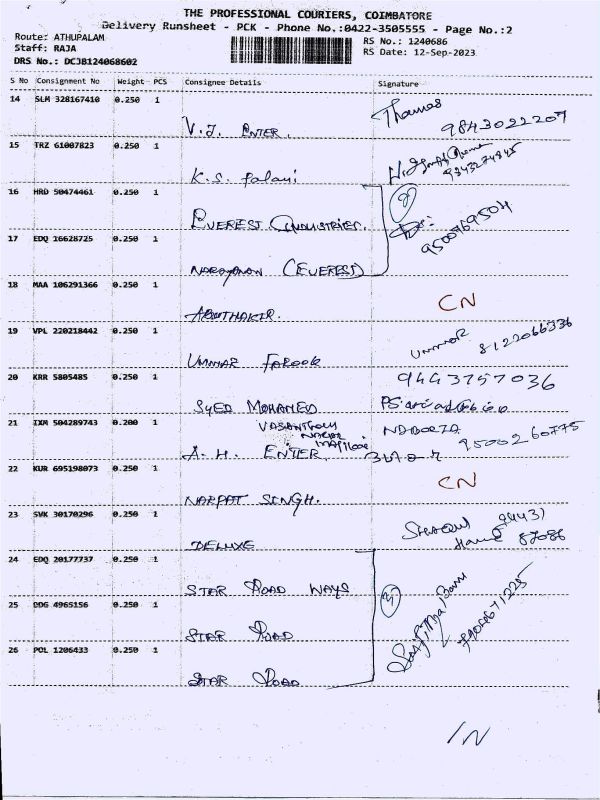 THE PROFESSIONAL COURIERS, COIMBATORE
Delivery Runsheet - PCK - Phone No.:0422-3505555 - Page No.:2
Route: ATHUPALAM RS No.: 1240686
Staff: RAJA RS Date: 12-Sep-2023
DRS No.: DCJB124068602
S No Consignment No Weight PCS Consignee Details Signature
14 SLM 328167410 0.250 1
V.J. ENTER. Thomas 9843022207
15 TRZ 61007823 0.250 1
K.S. Palani
16 HRD 50474461 0.250 1
EVEREST INDUSTRIES.
17 EDQ 16628725 0.250 1
NARAYANAN (EVEREST)
18 MAA 106291366 0.250 1
ABUTHAKIR. CN
19 VPL 220218442 0.250 1
UMMAR FAROOK UMMAR 8122066336
20 KRR 5805485 0.250 1 9443757036
SYED MOHAMED
21 IXM 504289743 0.200 1 VASANTHAM
NAGAR
A.H. ENTER 9500260775
22 KUR 695198073 0.250 1
NARPAT SINGH. CN
23 SVK 30170296 0.250 1
DELUXE 94431 87086
24 EDQ 20177737 0.250 1
STAR ROAD WAYS
25 DDG 4965156 0.250 1
STAR ROAD
26 POL 1206433 0.250 1
STAR ROAD